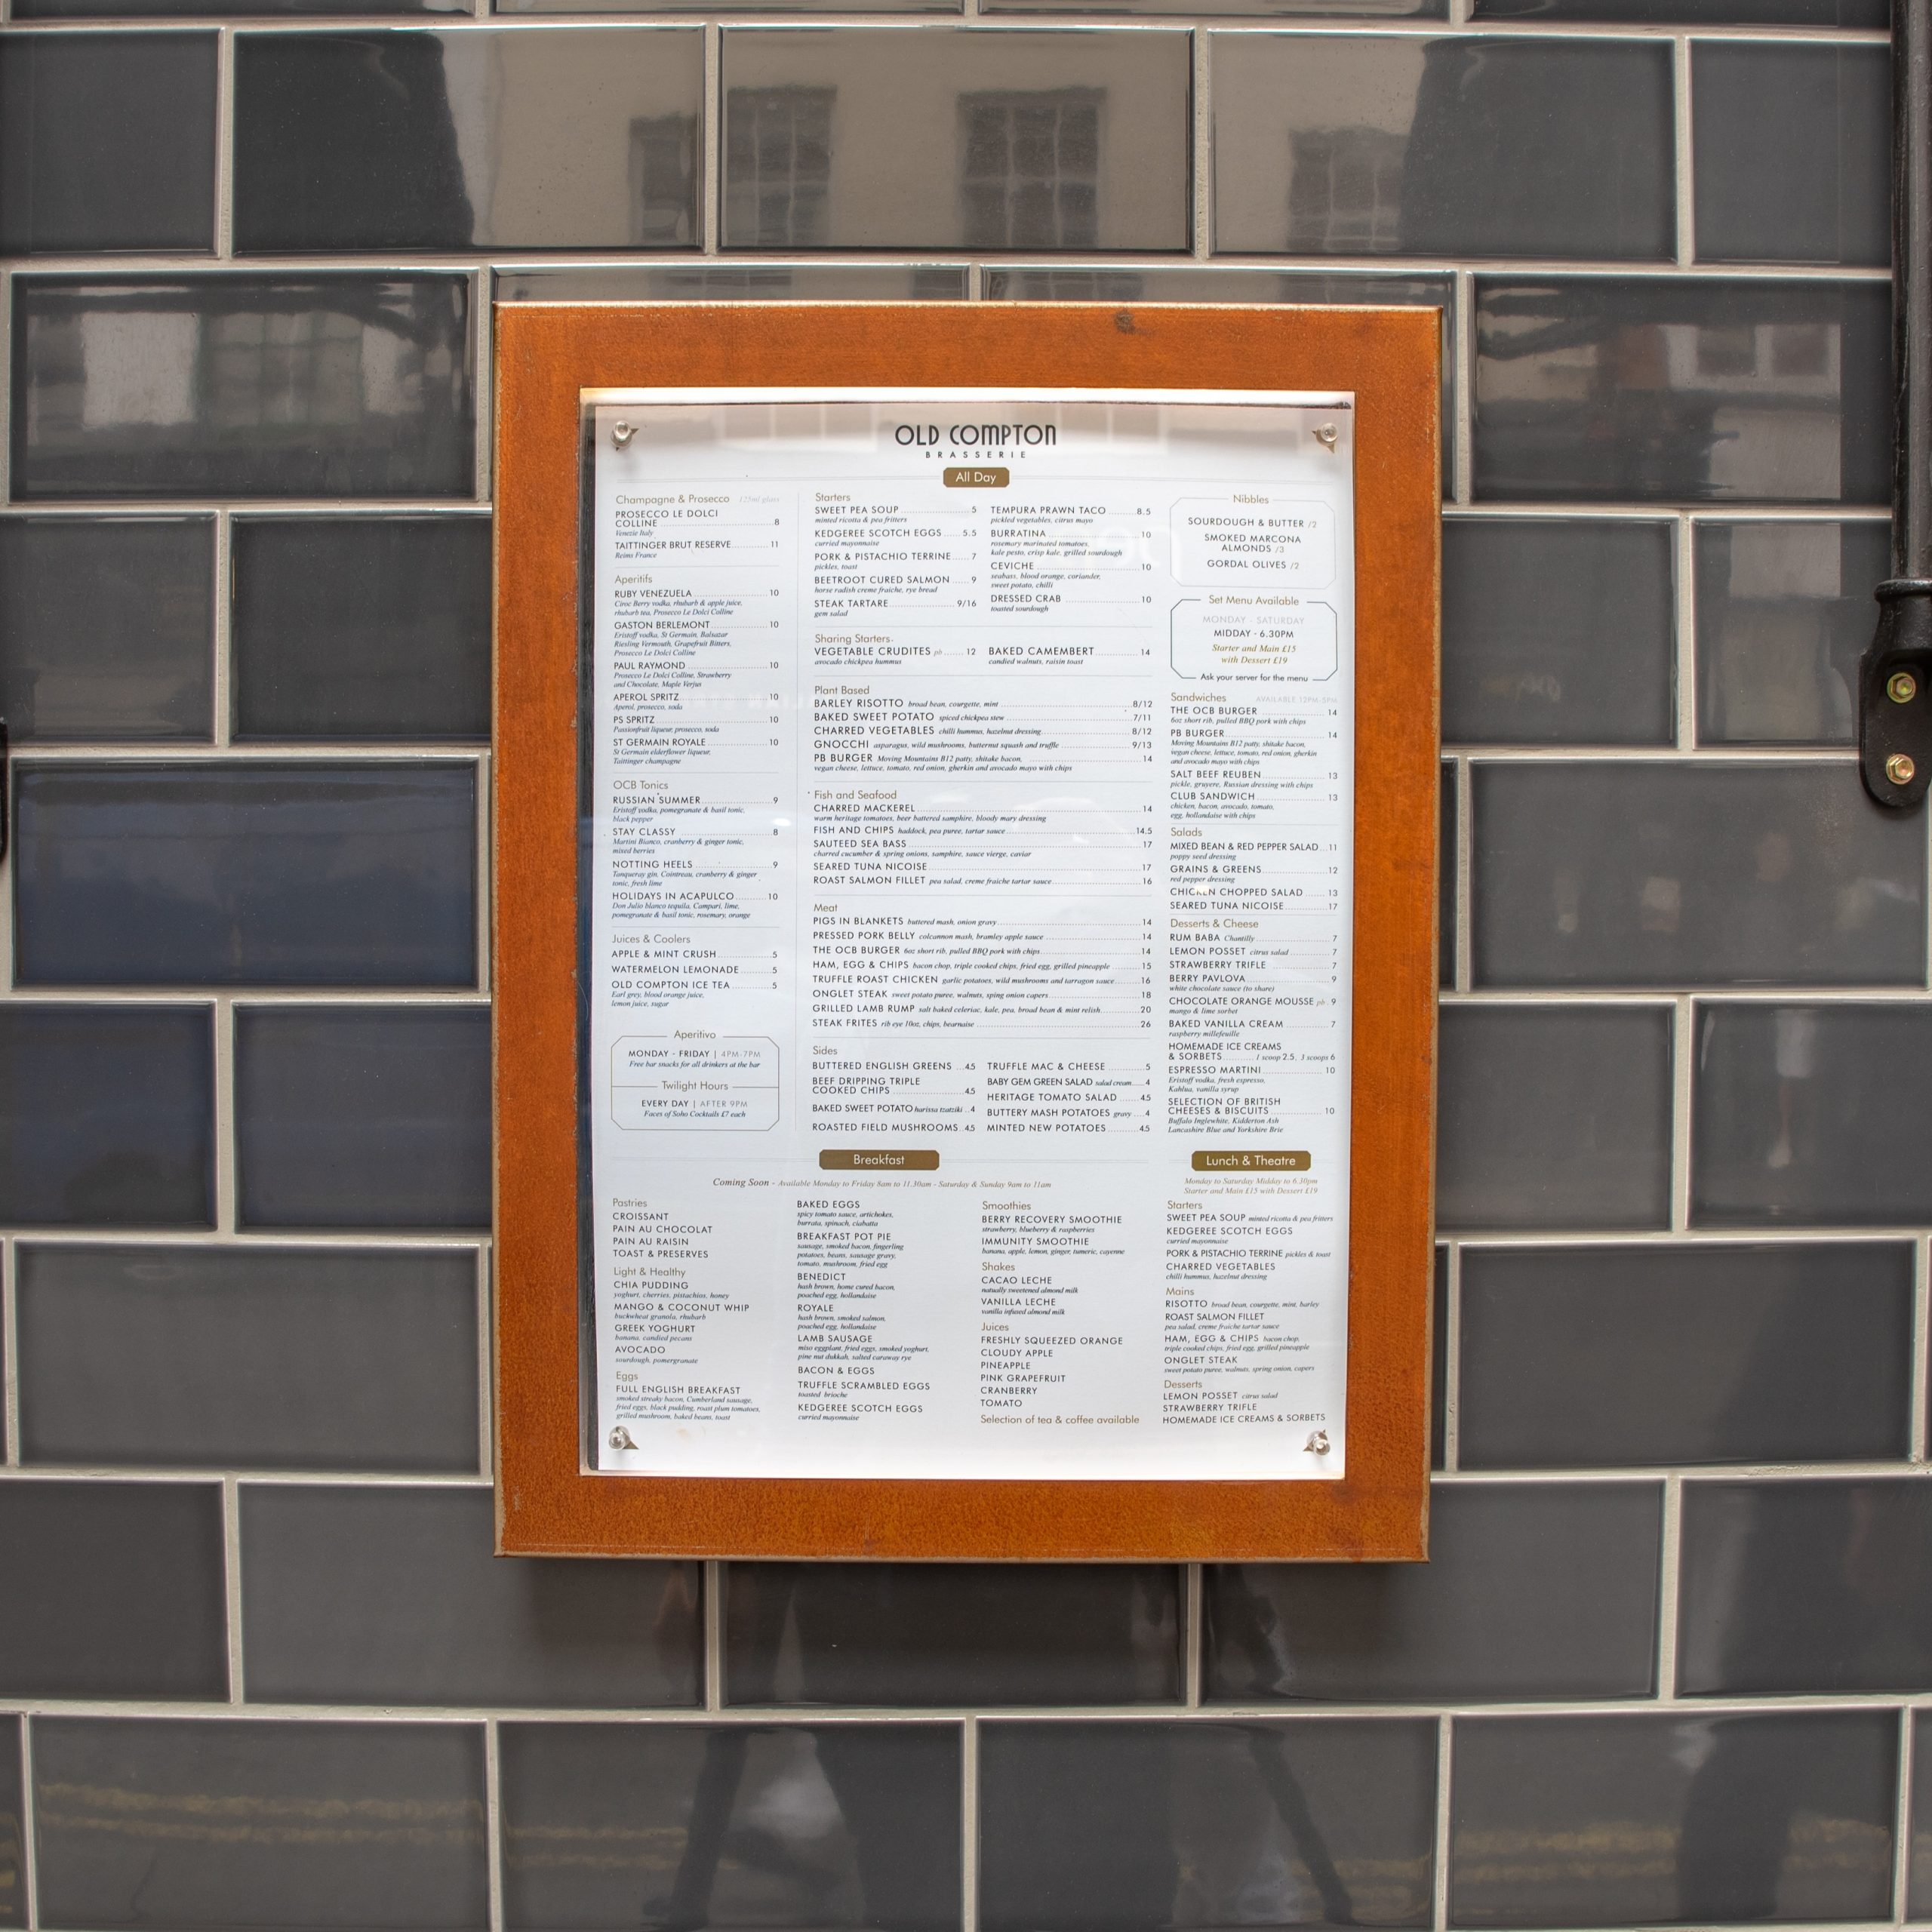 OLD COMPTON
BRASSERIE
All Day
Champagne & Prosecco 125ml glass
PROSECCO LE DOLCI
COLLINE 8
Venezie Italy
TAITTINGER BRUT RESERVE 11
Reims France
Aperitifs
RUBY VENEZUELA 10
Ciroc Berry vodka, rhubarb & apple juice,
rhubarb tea, Prosecco Le Dolci Colline
GASTON BERLEMONT 10
Eristoff vodka, St Germain, Balsazar
Riesling Vermouth, Grapefruit Bitters,
Prosecco Le Dolci Colline
PAUL RAYMOND 10
Prosecco Le Dolci Colline, Strawberry
and Chocolate, Maple Verjus
APEROL SPRITZ 10
Aperol, prosecco, soda
PS SPRITZ 10
Passionfruit liqueur, prosecco, soda
ST GERMAIN ROYALE 10
St Germain elderflower liqueur,
Taittinger champagne
OCB Tonics
RUSSIAN SUMMER 9
Eristoff vodka, pomegranate & basil tonic,
black pepper
STAY CLASSY 8
Martini Bianco, cranberry & ginger tonic,
mixed berries
NOTTING HEELS 9
Tanqueray gin, Cointreau, cranberry & ginger
tonic, fresh lime
HOLIDAYS IN ACAPULCO 10
Don Julio blanco tequila, Campari, lime,
pomegranate & basil tonic, rosemary, orange
Juices & Coolers
APPLE & MINT CRUSH 5
WATERMELON LEMONADE 5
OLD COMPTON ICE TEA 5
Earl grey, blood orange juice,
lemon juice, sugar
Aperitivo
MONDAY - FRIDAY | 4PM-7PM
Free bar snacks for all drinkers at the bar
Twilight Hours
EVERY DAY | AFTER 9PM
Faces of Soho Cocktails £7 each
Starters
SWEET PEA SOUP 5
minted ricotta & pea fritters
KEDGEREE SCOTCH EGGS 5.5
curried mayonnaise
PORK & PISTACHIO TERRINE 7
pickles, toast
BEETROOT CURED SALMON 9
horse radish creme fraiche, rye bread
STEAK TARTARE 9/16
gem salad
TEMPURA PRAWN TACO 8.5
pickled vegetables, citrus mayo
BURRATINA 10
rosemary marinated tomatoes,
kale pesto, crisp kale, grilled sourdough
CEVICHE 10
seabass, blood orange, coriander,
sweet potato, chilli
DRESSED CRAB 10
toasted sourdough
Sharing Starters
VEGETABLE CRUDITES pb 12
avocado chickpea hummus
BAKED CAMEMBERT 14
candied walnuts, raisin toast
Plant Based
BARLEY RISOTTO broad bean, courgette, mint 8/12
BAKED SWEET POTATO spiced chickpea stew 7/11
CHARRED VEGETABLES chilli hummus, hazelnut dressing 8/12
GNOCCHI asparagus, wild mushrooms, butternut squash and truffle 9/13
PB BURGER Moving Mountains B12 patty, shitake bacon, 14
vegan cheese, lettuce, tomato, red onion, gherkin and avocado mayo with chips
Fish and Seafood
CHARRED MACKEREL 14
warm heritage tomatoes, beer battered samphire, bloody mary dressing
FISH AND CHIPS haddock, pea puree, tartar sauce 14.5
SAUTEED SEA BASS 17
charred cucumber & spring onions, samphire, sauce vierge, caviar
SEARED TUNA NICOISE 17
ROAST SALMON FILLET pea salad, creme fraiche tartar sauce 16
Meat
PIGS IN BLANKETS buttered mash, onion gravy 14
PRESSED PORK BELLY colcannon mash, bramley apple sauce 14
THE OCB BURGER 6oz short rib, pulled BBQ pork with chips 14
HAM, EGG & CHIPS bacon chop, triple cooked chips, fried egg, grilled pineapple 15
TRUFFLE ROAST CHICKEN garlic potatoes, wild mushrooms and tarragon sauce 16
ONGLET STEAK sweet potato puree, walnuts, sping onion capers 18
GRILLED LAMB RUMP salt baked celeriac, kale, pea, broad bean & mint relish 20
STEAK FRITES rib eye 10oz, chips, bearnaise 26
Sides
BUTTERED ENGLISH GREENS 4.5
BEEF DRIPPING TRIPLE
COOKED CHIPS 4.5
BAKED SWEET POTATO harissa tzatziki 4
ROASTED FIELD MUSHROOMS 4.5
TRUFFLE MAC & CHEESE 5
BABY GEM GREEN SALAD salad cream 4
HERITAGE TOMATO SALAD 4.5
BUTTERY MASH POTATOES gravy 4
MINTED NEW POTATOES 4.5
Nibbles
SOURDOUGH & BUTTER /2
SMOKED MARCONA
ALMONDS /3
GORDAL OLIVES /2
Set Menu Available
MONDAY - SATURDAY
MIDDAY - 6.30PM
Starter and Main £15
with Dessert £19
Ask your server for the menu
Sandwiches AVAILABLE 12PM-5PM
THE OCB BURGER 14
6oz short rib, pulled BBQ pork with chips
PB BURGER 14
Moving Mountains B12 patty, shitake bacon,
vegan cheese, lettuce, tomato, red onion, gherkin
and avocado mayo with chips
SALT BEEF REUBEN 13
pickle, gruyere, Russian dressing with chips
CLUB SANDWICH 13
chicken, bacon, avocado, tomato,
egg, hollandaise with chips
Salads
MIXED BEAN & RED PEPPER SALAD 11
poppy seed dressing
GRAINS & GREENS 12
red pepper dressing
CHICKEN CHOPPED SALAD 13
SEARED TUNA NICOISE 17
Desserts & Cheese
RUM BABA Chantilly 7
LEMON POSSET citrus salad 7
STRAWBERRY TRIFLE 7
BERRY PAVLOVA 9
white chocolate sauce (to share)
CHOCOLATE ORANGE MOUSSE pb 9
mango & lime sorbet
BAKED VANILLA CREAM 7
raspberry millefeuille
HOMEMADE ICE CREAMS
& SORBETS 1 scoop 2.5, 3 scoops 6
ESPRESSO MARTINI 10
Eristoff vodka, fresh espresso,
Kahlua, vanilla syrup
SELECTION OF BRITISH
CHEESES & BISCUITS 10
Buffalo Inglewhite, Kidderton Ash
Lancashire Blue and Yorkshire Brie
Breakfast
Coming Soon - Available Monday to Friday 8am to 11.30am - Saturday & Sunday 9am to 11am
Pastries
CROISSANT
PAIN AU CHOCOLAT
PAIN AU RAISIN
TOAST & PRESERVES
Light & Healthy
CHIA PUDDING
yoghurt, cherries, pistachios, honey
MANGO & COCONUT WHIP
buckwheat granola, rhubarb
GREEK YOGHURT
banana, candied pecans
AVOCADO
sourdough, pomergranate
Eggs
FULL ENGLISH BREAKFAST
smoked streaky bacon, Cumberland sausage,
fried eggs, black pudding, roast plum tomatoes,
grilled mushroom, baked beans, toast
BAKED EGGS
spicy tomato sauce, artichokes,
burrata, spinach, ciabatta
BREAKFAST POT PIE
sausage, smoked bacon, fingerling
potatoes, beans, sausage gravy,
tomato, mushroom, fried egg
BENEDICT
hash brown, home cured bacon,
poached egg, hollandaise
ROYALE
hash brown, smoked salmon,
poached egg, hollandaise
LAMB SAUSAGE
miso eggplant, fried eggs, smoked yoghurt,
pine nut dukkah, salted caraway rye
BACON & EGGS
TRUFFLE SCRAMBLED EGGS
toasted brioche
KEDGEREE SCOTCH EGGS
curried mayonnaise
Smoothies
BERRY RECOVERY SMOOTHIE
strawberry, blueberry & raspberries
IMMUNITY SMOOTHIE
banana, apple, lemon, ginger, tumeric, cayenne
Shakes
CACAO LECHE
natually sweetened almond milk
VANILLA LECHE
vanilla infused almond milk
Juices
FRESHLY SQUEEZED ORANGE
CLOUDY APPLE
PINEAPPLE
PINK GRAPEFRUIT
CRANBERRY
TOMATO
Selection of tea & coffee available
Lunch & Theatre
Monday to Saturday Midday to 6.30pm
Starter and Main £15 with Dessert £19
Starters
SWEET PEA SOUP minted ricotta & pea fritters
KEDGEREE SCOTCH EGGS
curried mayonnaise
PORK & PISTACHIO TERRINE pickles & toast
CHARRED VEGETABLES
chilli hummus, hazelnut dressing
Mains
RISOTTO broad bean, courgette, mint, barley
ROAST SALMON FILLET
pea salad, creme fraiche tartar sauce
HAM, EGG & CHIPS bacon chop,
triple cooked chips, fried egg, grilled pineapple
ONGLET STEAK
sweet potato puree, walnuts, spring onion, capers
Desserts
LEMON POSSET citrus salad
STRAWBERRY TRIFLE
HOMEMADE ICE CREAMS & SORBETS